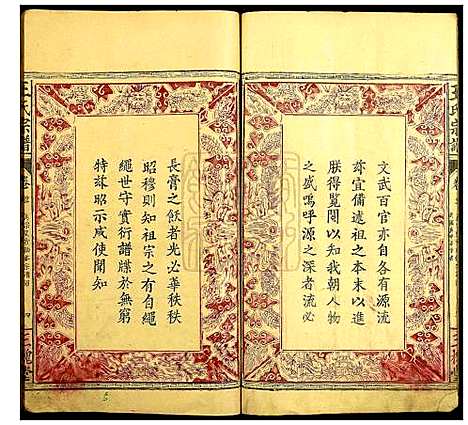 文武百官亦自各有源流
宜備述祖之本末以進
朕得覽閱以知我朝人物
之盛嗚呼源之深者流必
長膏之飫者光必華秩秩
昭穆則知祖宗之有自繩
繩世守實衍譜牒於無窮
特茲昭示咸使聞知
王氏宗譜
王氏宗譜
卷
四
三槐堂
三槐堂